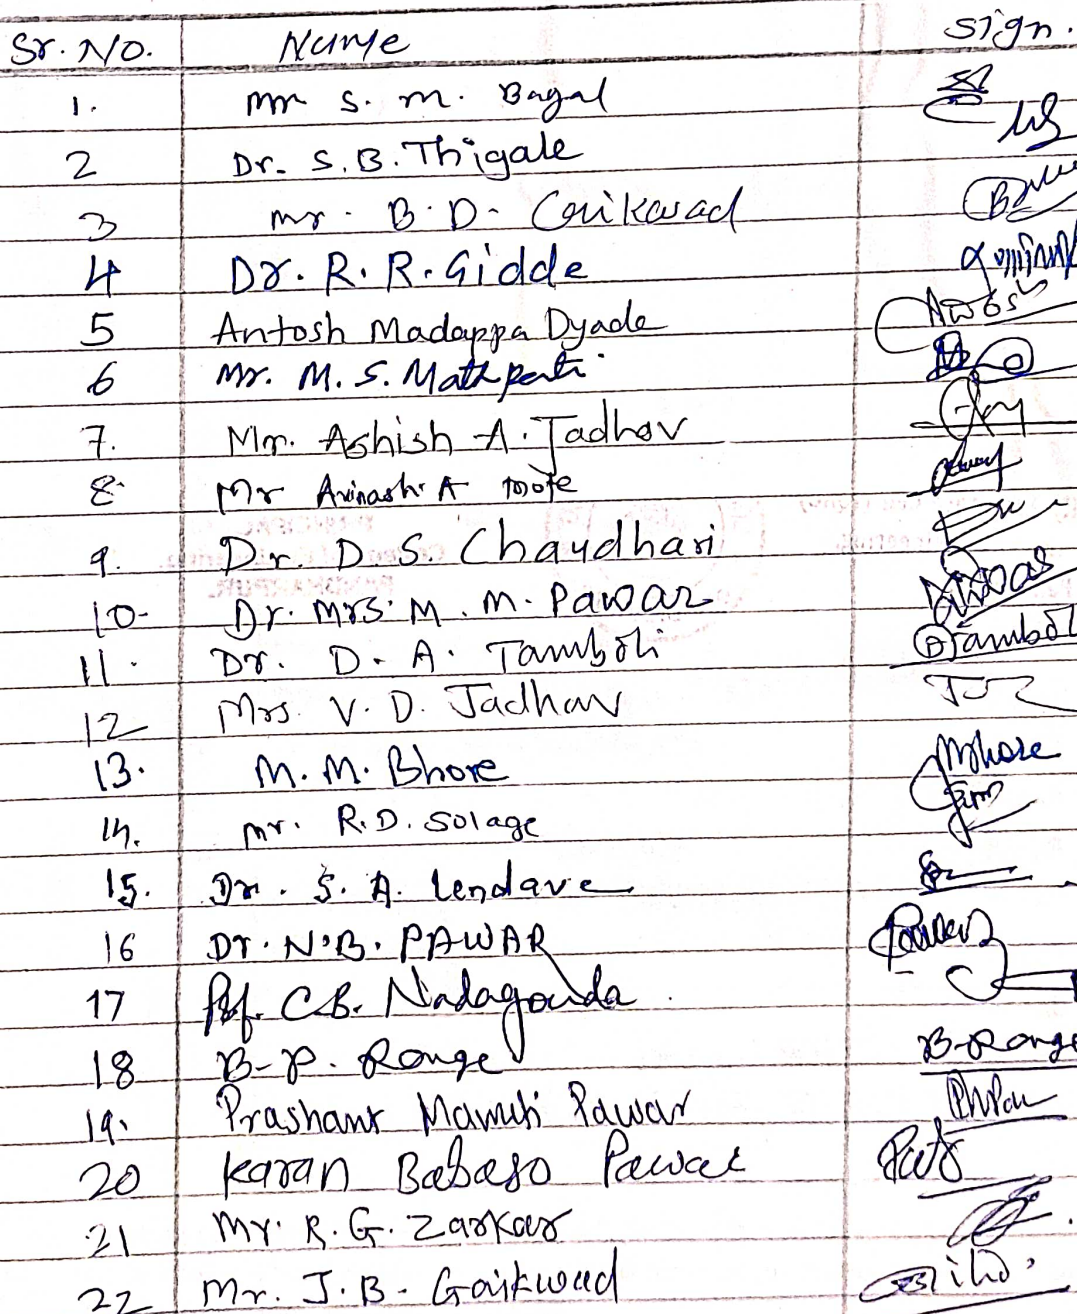 Sr. No. Name Sign.
1. Mr S. M. Bagal
2 Dr. S. B. Thigale
3 Mr. B. D. Gaikwad
4 Dr. R. R. Gidde
5 Antosh Madappa Dyade
6 Mr. M. S. Mathpati
7. Mr. Ashish A. Jadhav
8 Mr Avinash A mote
9. Dr. D. S. Chaudhari
10- Dr. Mrs. M. M. Pawar
11. Dr. D. A. Tamboli Tamboli
12 Mrs. V. D. Jadhav
13. M. M. Bhore Mbhore
14. Mr. R. D. Solage
15. Dr. S. A. Lendave
16 Dr. N. B. PAWAR
17 Prof. C. B. Nadagouda
18 B. P. Ronge B. Ronge
19. Prashant Maruti Pawar
20 Karan Babaso Pawar
21 Mr. R. G. Zarkar
22 Mr. J. B. Gaikwad